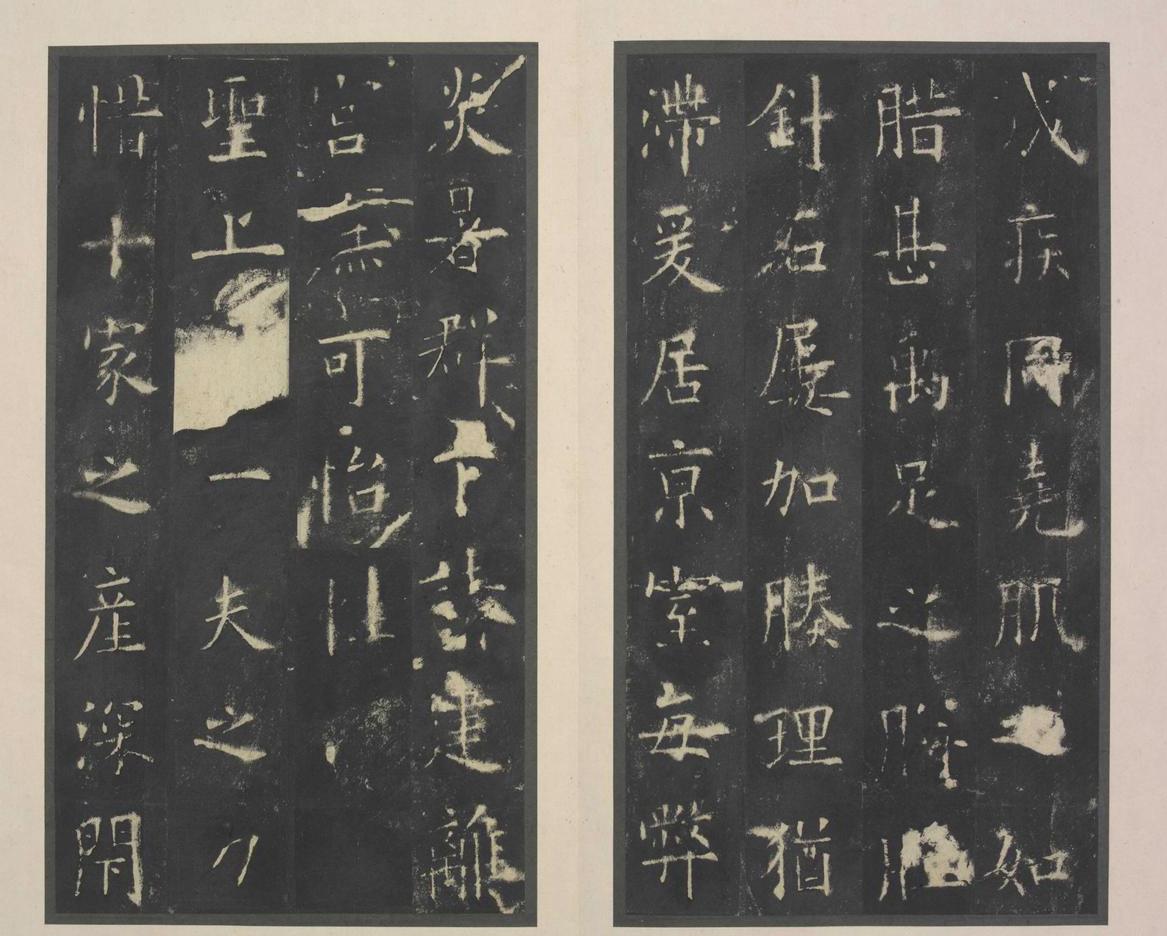 成疾同堯肌如
腊甚禹足之胼胝
針石屢加腠理猶
滯爰居京室每弊
炎暑群下請建離
宮庶可怡性
聖上一夫之力
惜十家之産深閇